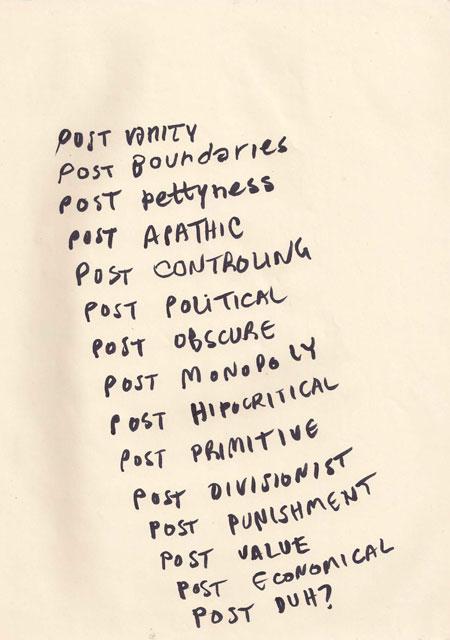 POST VANITY
POST BOUNDARIES
POST pettyness
POST APATHIC
POST CONTROLING
POST POLITICAL
POST OBSCURE
POST MONOPOLY
POST HIPOCRITICAL
POST PRIMITIVE
POST DIVISIONIST
POST PUNISHMENT
POST VALUE
POST ECONOMICAL
POST DUH?